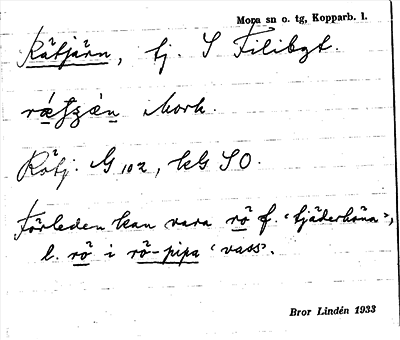 Mora sn o. tg, Kopparb. l.
Rätjärn, tj. S Filibgt.
Mork.
Rötj. G 102, kls SO.
Förleden kan vara rö f. 'tjäderhöna',
l. rö i rö-pipa 'vass'.
Bror Lindén 1933